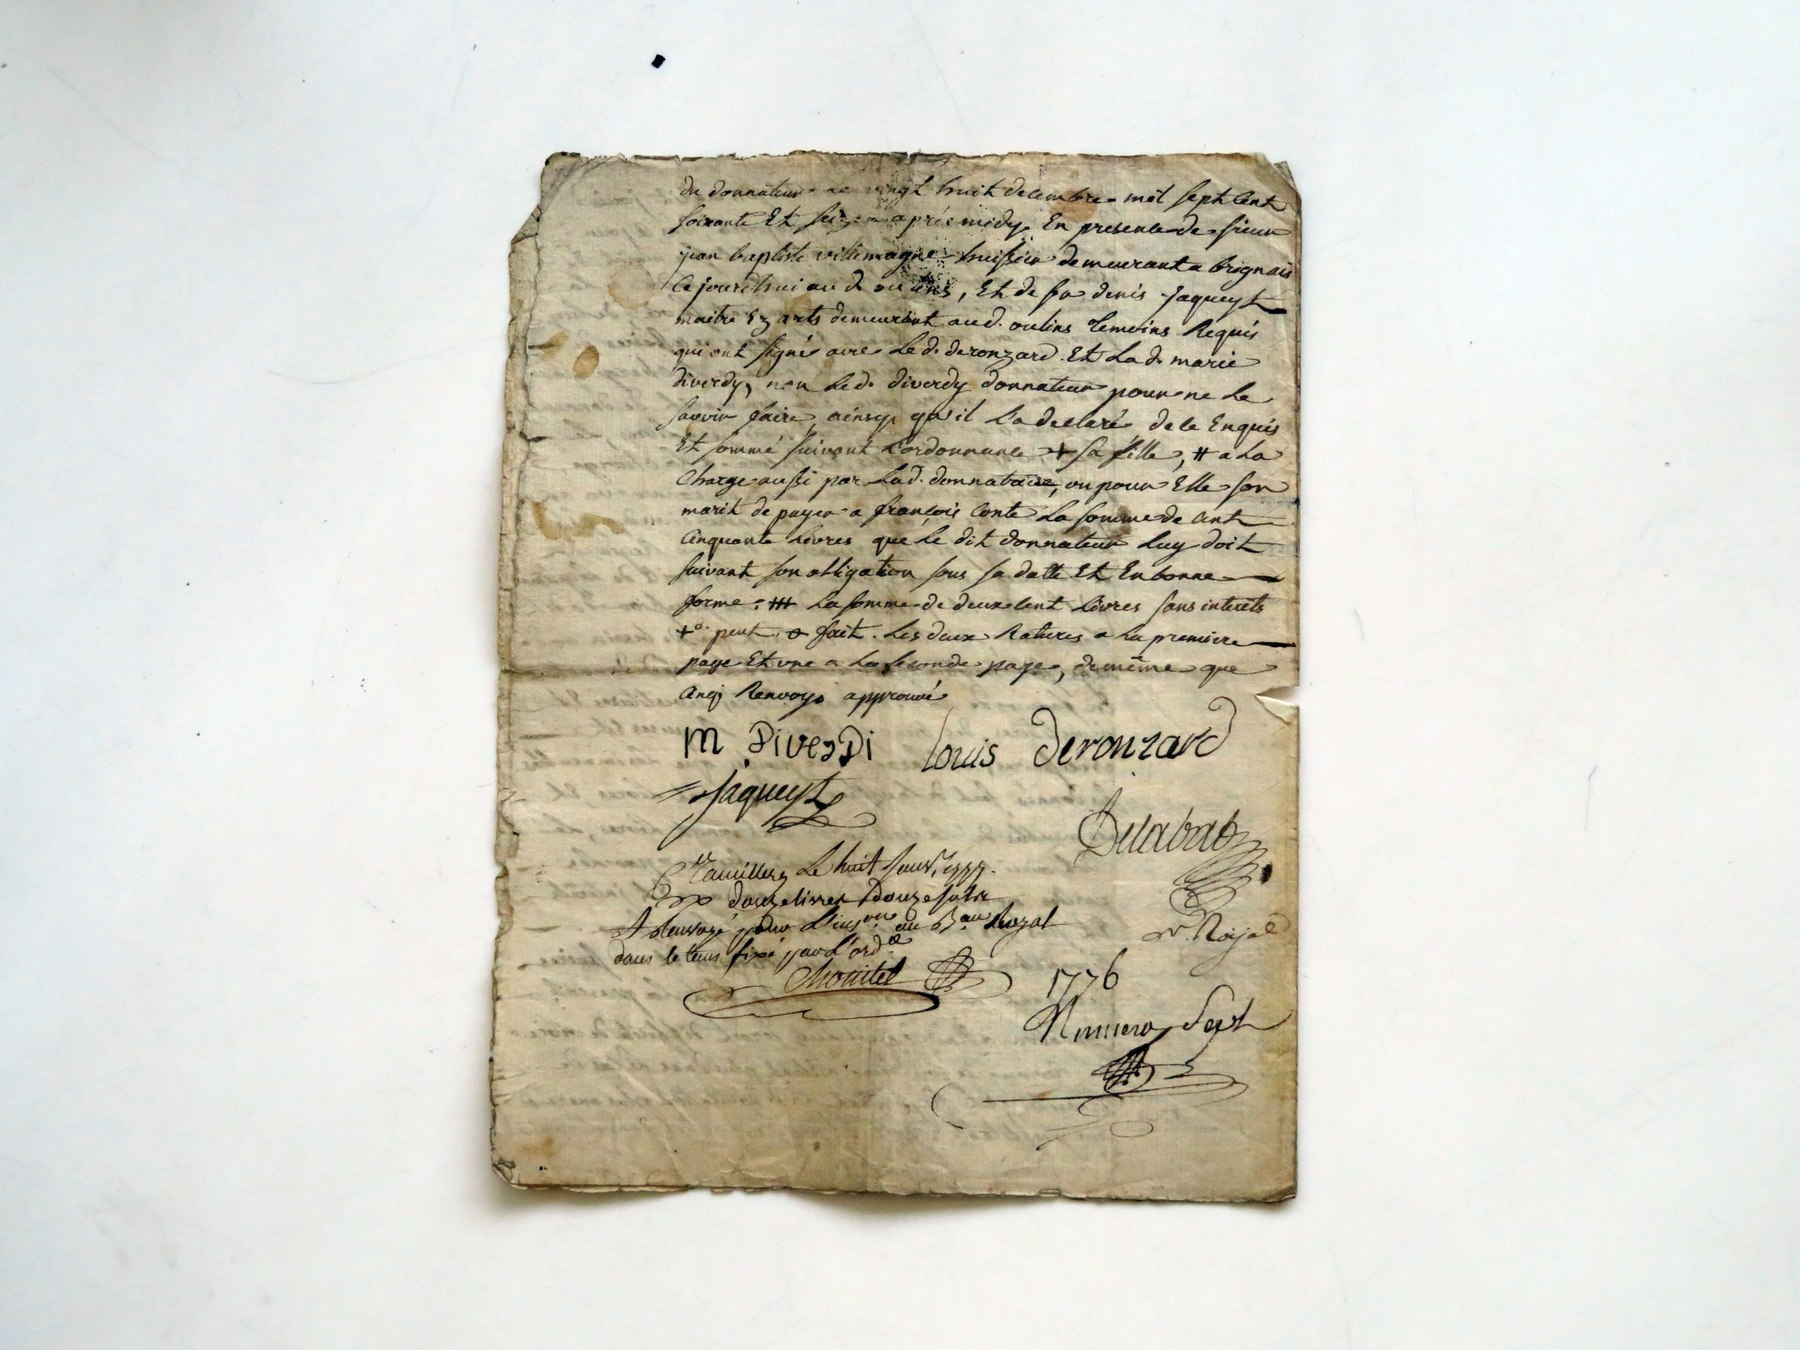 du donnateur ce vingt huit decembre mil sept cent
soixante Et seize apres midy En presence de sieur
jean baptiste villemagne huissier demeurant a brignais
Ce jourdhui au d. oulins, Et de sr denis Jaqueyt
maitre Ez arts demeurant aud. oulins temoins Requis
qui ont signé avec Le d. deronzard Et La d. marie
diverdy, non Le d. diverdy donnateur pour ne Le
savoir faire, ainsy qu'il L'a declaré de ce Enquis
Et sommé suivant L'ordonnance + sa fille, # a La
Charge aussi par La d. donnataire, ou pour Elle son
marit de payer a françois Conte La somme de Cent
Cinquante Livres que Le dit donnateur Luy doit
suivant son obligation sous sa datte Et En bonne
forme. ## La somme de deux Cent Livres sans interets
+o. peut. o fait. Les deux Ratures a La premiere
page Et une a La seconde page, de même que
Cinq Renvoys approuvé
M DiverDi Louis deronzard
Jaqueyt
Delabat
Le huit Janv. 1777.
douze livres douze sols
Renvoyé pour L'ins.on au B.au Royal
dans le tems fixé par L'ord.ce
Nre. Royal
1776
Numero Sept